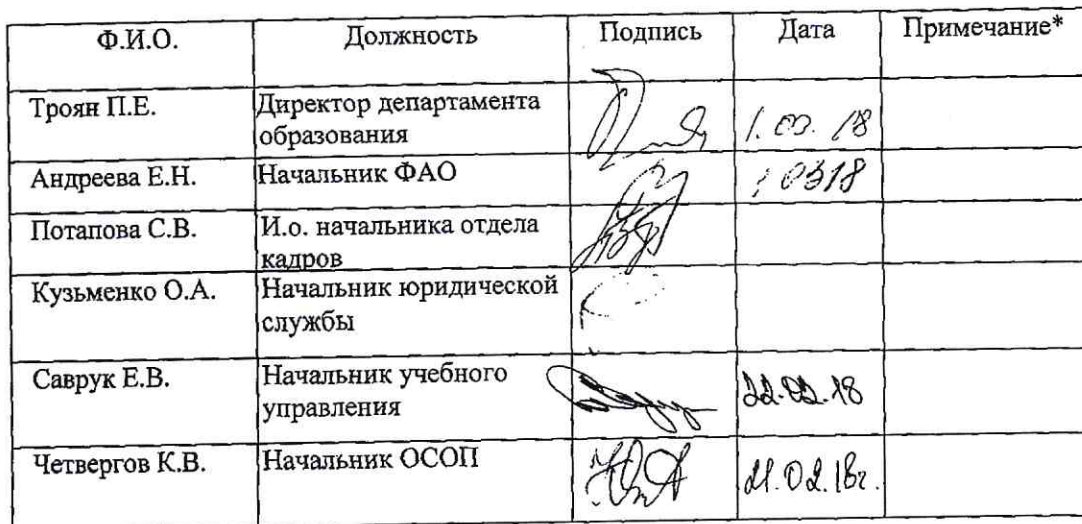 Ф.И.О. Должность Подпись Дата Примечание*
Троян П.Е. Директор департамента
образования 1.03. 18
Андреева Е.Н. Начальник ФАО 0318
Потапова С.В. И.о. начальника отдела
кадров
Кузьменко О.А. Начальник юридической
службы
Саврук Е.В. Начальник учебного
управления 22.02.18
Четвергов К.В. Начальник ОСОП 21.02.18г.